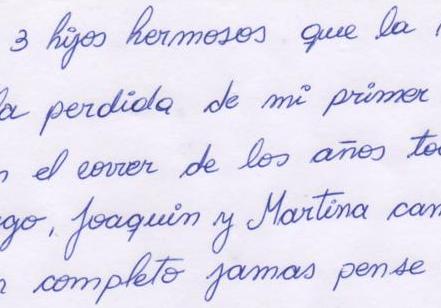 3 hijos hermosos que la
la perdida de mi primer
n el correr de los años to
go, Joaquin y Martina cam
n completo jamas pense